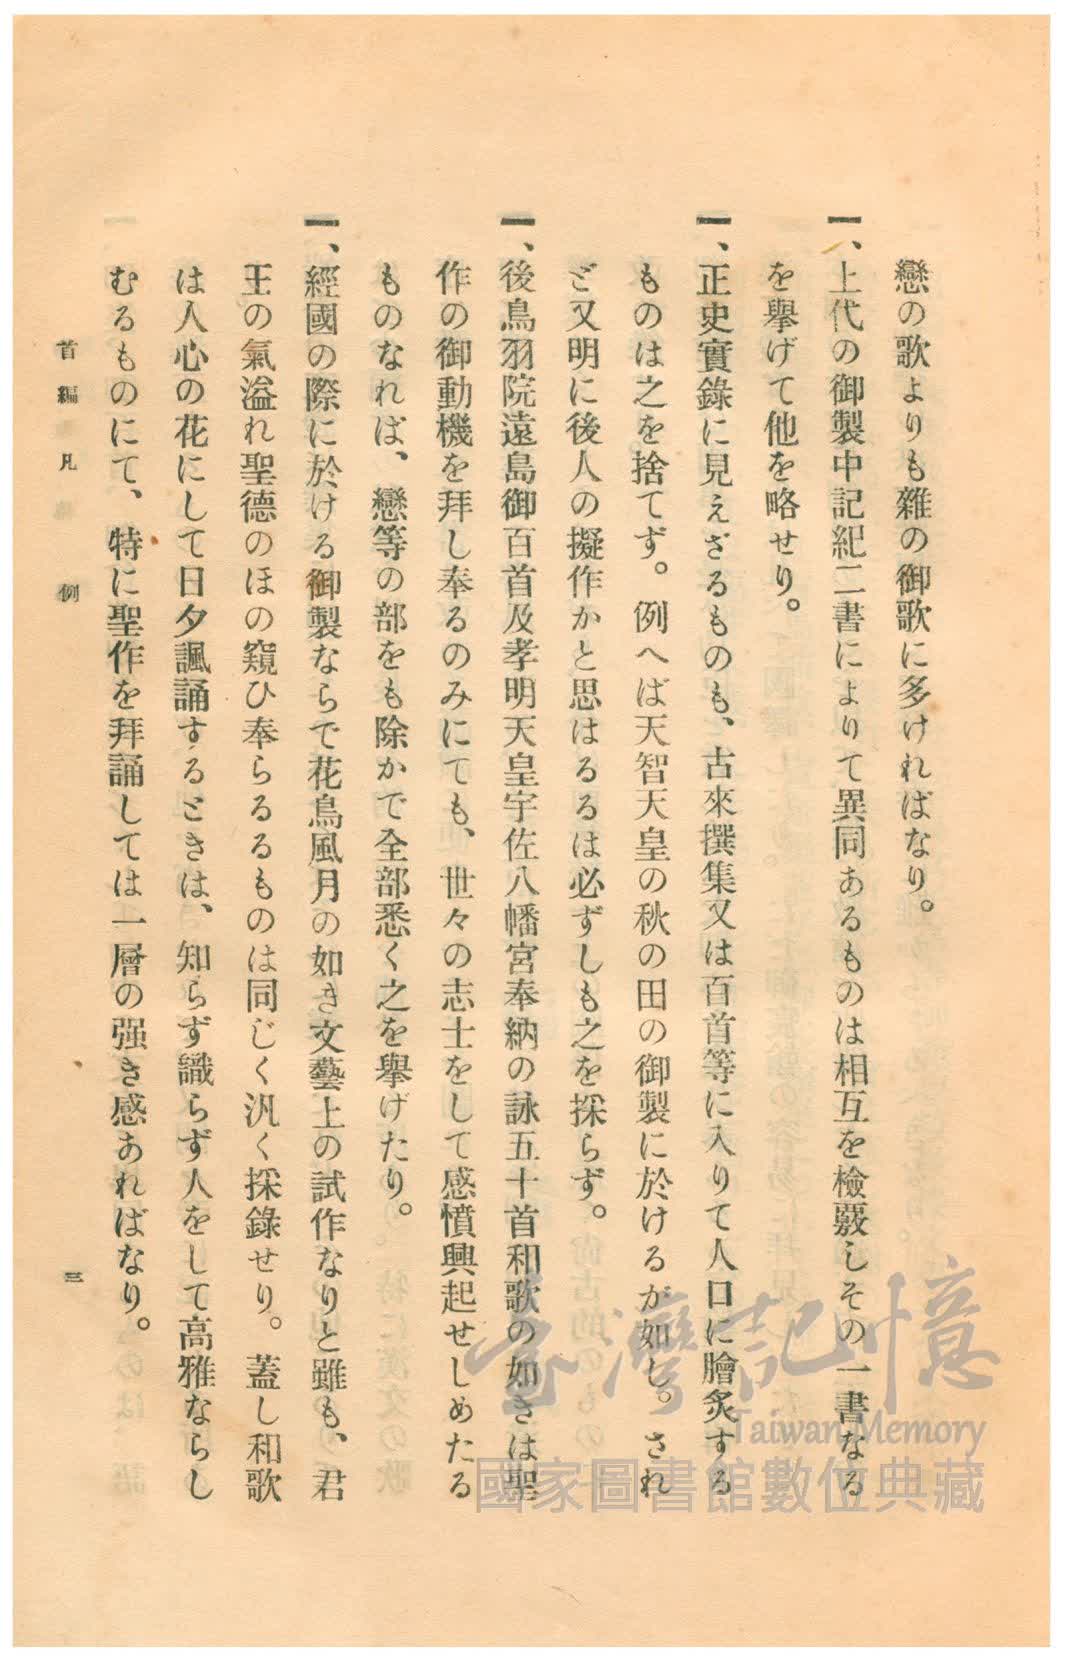 戀の歌よりも雜の御歌に多ければなり。
一、上代の御製中記紀二書によりて異同あるものは相互を檢覈しその一書なる
を擧げて他を略せり。
一、正史實錄に見えざるものも、古來撰集又は百首等に入りて人口に膾炙する
ものは之を捨てず。例へば天智天皇の秋の田の御製に於けるが如し。され
ど又明に後人の擬作かと思はるるは必ずしも之を採らず。
一、後鳥羽院遠島御百首及孝明天皇宇佐八幡宮奉納の詠五十首和歌の如きは聖
作の御動機を拜し奉るのみにても、世々の志士をして感憤興起せしめたる
ものなれば、戀等の部をも除かで全部悉く之を擧げたり。
一、經國の際に於ける御製ならで花鳥風月の如き文藝上の試作なりと雖も、君
王の氣溢れ聖德のほの窺ひ奉らるるものは同じく汎く採錄せり。蓋し和歌
は人心の花にして日夕諷誦するときは、知らず識らず人をして高雅ならし
むるものにて、特に聖作を拜誦しては一層の强き感あればなり。
首編 凡例
三
臺灣記憶
Taiwan Memory
國家圖書館數位典藏